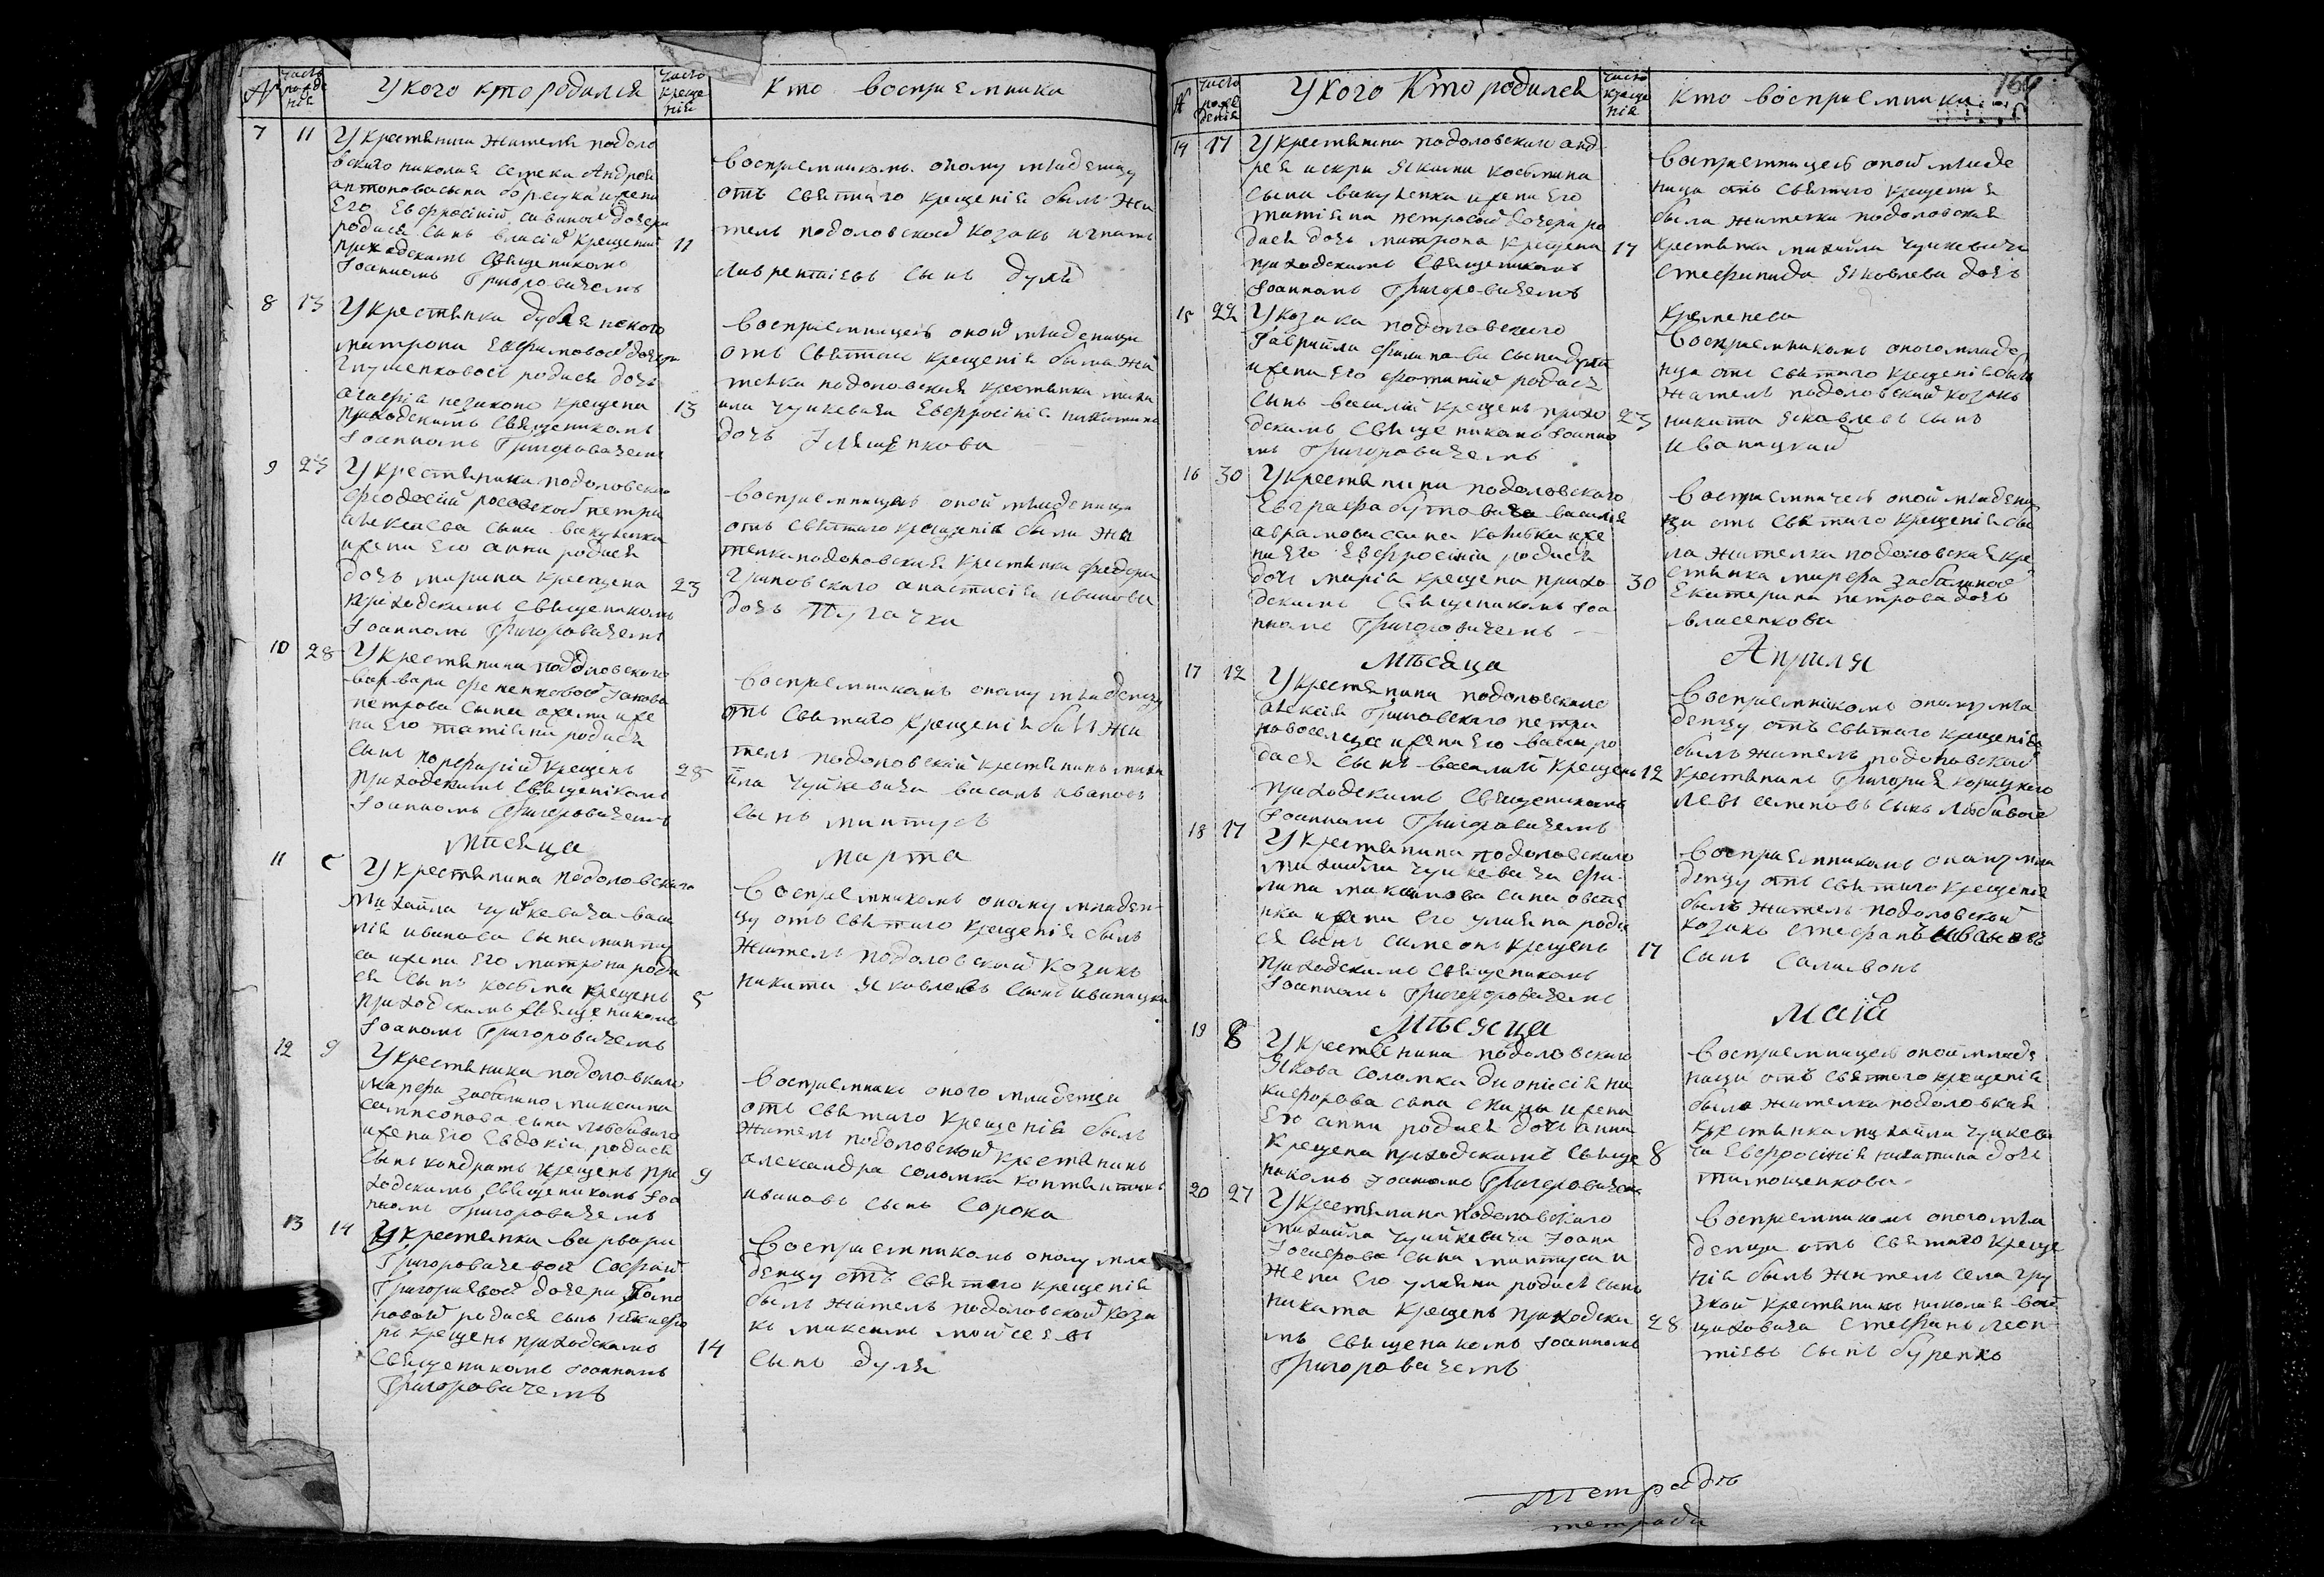 №
число рожде нія
У кого кто родился
число креще нія
Кто воспріемники
7 11
У крестянина жителя подоло
вского николая Андрея
антонова сына и жены
Его Евфросиніи савиной дочери
родися сынъ власій крещенъ 11
приходскимъ священикомъ
Іоанномъ Григоровичемъ
воспріемникомъ оному младенцу
отъ святаго крещенія былъ жи
тель подоловской козакъ игнатъ
лаврентіевъ сынъ дуля
8 13
У крестянки
матроны Ефимовой дочери
родися дочь
агафія незаконо крещена 13
приходскимъ священикомъ
Іоанномъ Григоровичемъ
воспріемницею оной младеницы
отъ святаго крещенія была жи
телка подоловская крестянка миха
ила чуйкевича Евфросинія никитина
дочь
9 23
У крестянина подоловского
феодосіи петра
алексѣева сына вакуленка
и жены его анны родися
дочь марина крещена 23
приходскимъ священикомъ
Іоанномъ Григоровичемъ
воспріемницею оной младеницы
отъ святаго крещенія была жи
телка подоловская крестянка федора
гриновского анастасія иванова
дочь Пугачка
10 28
У крестянина подоловского
варвары Іакова
петрова сына и же
ны его татіяны родися
сынъ порфирій крещенъ 28
приходскимъ священикомъ
Іоанномъ Григоровичемъ
воспріемникомъ оному младенцу
отъ святаго крещенія былъ жи
тель подоловскій крестянинъ миха
ила чуйкевича василь ивановъ
сынъ мантусъ
Мѣсяца
Марта
11 5
У крестянина подоловского
михайла чуйкевича васи
лія иванова сына манту
са и жены его матроны роди
ся сынъ косьма крещенъ 5
приходскимъ священикомъ
Іоаномъ Григоровичемъ
воспріемникомъ оному младен
цу отъ святаго крещенія былъ
житель подоловскій козакъ
никита яковлевъ сынъ иваницки
12 9
У крестянина подоловского
забѣлино максима
сампсонова сына любивого
и жены его Евдокіи родися
сынъ кондратъ крещенъ при 9
ходскимъ священикомъ Іоа
нномъ Григоровичемъ
воспріемникъ оного младенца
отъ святаго крещенія былъ
житель подоловской крестянинъ
александра соломки
ивановъ сынъ сорока
13 14
У крестянки варвары
Григоровичевой Софіи
Григоріевой дочери
родися сынъ никифо
ръ крещенъ приходскимъ 14
священикомъ Іоанномъ
Григоровичемъ
воспріемникомъ оному мла
денцу отъ святаго крещенія
былъ житель подоловской коза
къ максимъ мойсеевъ
сынъ дуля
164
№
число рожденія
У кого Кто родился
число креще нія
Кто воспріемники
14 17
У крестянина подоловского анд
рея искри якима косьмина
сына вакуленка и жены его
татіяна петровой дочери ро
дися дочь матрона крещена 17
приходскимъ священикомъ
Іоанномъ Григоровичемъ
воспріемницею оной младе
ница отъ святаго крещенія
была жителка подоловская
крестянка михайла чуйкевича
стефанида яковлева дочь
кременева
15 22
У козака подоловского
Гавриила филипова сына дули
и жены его фотиніи родися
сынъ василій крещенъ прихо 23
дскимъ священикомъ Іоанно
мъ Григоровичемъ
воспріемникомъ оного младе
нца отъ святаго крещенія былъ
житель подоловскій козакъ
никита яковлевъ сынъ
иваницкий
16 30
У крестянина подоловского
Евграфа бутовича василія
аврамова сына и же
ны его Евфросиніи родися
дочь марія крещена прихо 30
дскимъ священикомъ Іоа
нномъ Григоровичемъ
воспріемницею оной младени
цы отъ святаго крещенія бы
ла жителка подоловская кре
стянка забѣлиной
Екатерина петрова дочь
власенкова
Мѣсяца
Апрѣля
17 12
У крестянина подоловского
алексія Гриновского петра
новоселца и жены его васы ро
дися сынъ василій крещенъ 12
приходскимъ священикомъ
Іоанномъ Григоровичемъ
воспріемникомъ оному мла
денцу отъ святаго крещенія
былъ житель подоловской
крестянинъ Григорія корицкого
левъ семеновъ сынъ любивой
18 17
У крестянина подоловского
михайла чуйкевича фи
липа максимова сына овсіе
нка и жены его улияна роди
ся сынъ симеонъ крещенъ 17
приходскимъ священикомъ
Іоанномъ Григоровичемъ
воспріемникомъ оному мла
денцу отъ святаго крещенія
былъ житель подоловской
козакъ стефанъ ивановъ
сынъ
Мѣсяца
Маія
19 8
У крестянина подоловского
Якова соломки дионисія ни
кифорова сына и жены
Его анны родися дочь анна
крещена приходскимъ свяще 8
никомъ Іоаномъ Григоровичемъ
воспріемницею оной младе
ницы отъ святого крещенія
была жителка подоловская
крестянка михайла чуйкеви
ча Евфросинія никитина дочь
тимошенкова
20 27
У крестянина подоловского
михайла чуйкевича Іоана
Іосифова сына мантуса и
жены его улияны родися сынъ
никита крещенъ приходски 28
мъ священикомъ Іоанномъ
Григоровичемъ
воспріемникомъ оного мла
денца отъ святаго креще
нія былъ житель села гру
зкой крестянинъ николая вой
цеховича стефанъ леон
тіевъ сынъ буренко
тетрадь
тетради